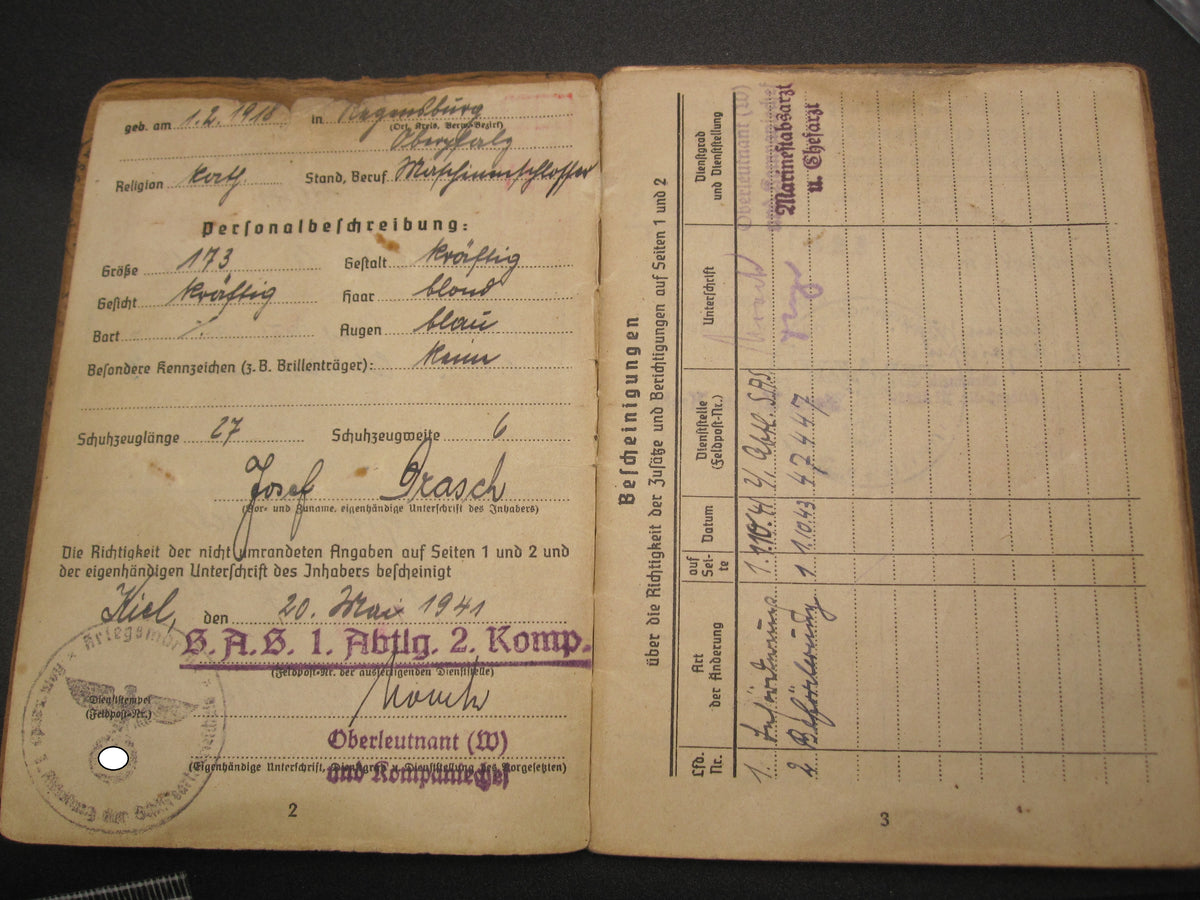 geb. am 1.2.1918 in Regensburg
(Ort, Kreis, Verw.-Bezirk)
Oberpfalz
Religion kath. Stand, Beruf Maschinenschlosser
Personalbeschreibung:
Größe 173 Gestalt kräftig
Gesicht kräftig Haar blond
Bart Augen blau
Besondere Kennzeichen (z. B. Brillenträger): keine
Schuhzeuglänge 27 Schuhzeugweite 6
Josef Grasch
(Vor- und Zuname, eigenhändige Unterschrift des Inhabers)
Die Richtigkeit der nicht umrandeten Angaben auf Seiten 1 und 2 und
der eigenhändigen Unterschrift des Inhabers bescheinigt
Kiel, den 20. Mai 1941
S.A.S. 1. Abtlg. 2. Komp.
(Feldpost-Nr. der ausfertigenden Dienststelle)
Dienststempel
(Feldpost-Nr.)
Oberleutnant (W)
(Eigenhändige Unterschrift, Dienstgrad u. Dienststellung des Vorgesetzten)
und Kompaniechef
2
Bescheinigungen
über die Richtigkeit der Zusätze und Berichtigungen auf Seiten 1 und 2
Lfd. Nr. Art der Änderung auf Seite Datum Dienststelle (Feldpost-Nr.) Unterschrift Dienstgrad und Dienststellung
1. Beförderung 1. 1.10.41 Abtl. SAS Oberleutnant (W) und Kompaniechef
2 Beförderung 1 1.10.43 47447 Marinestabsarzt u. Chefarzt
3